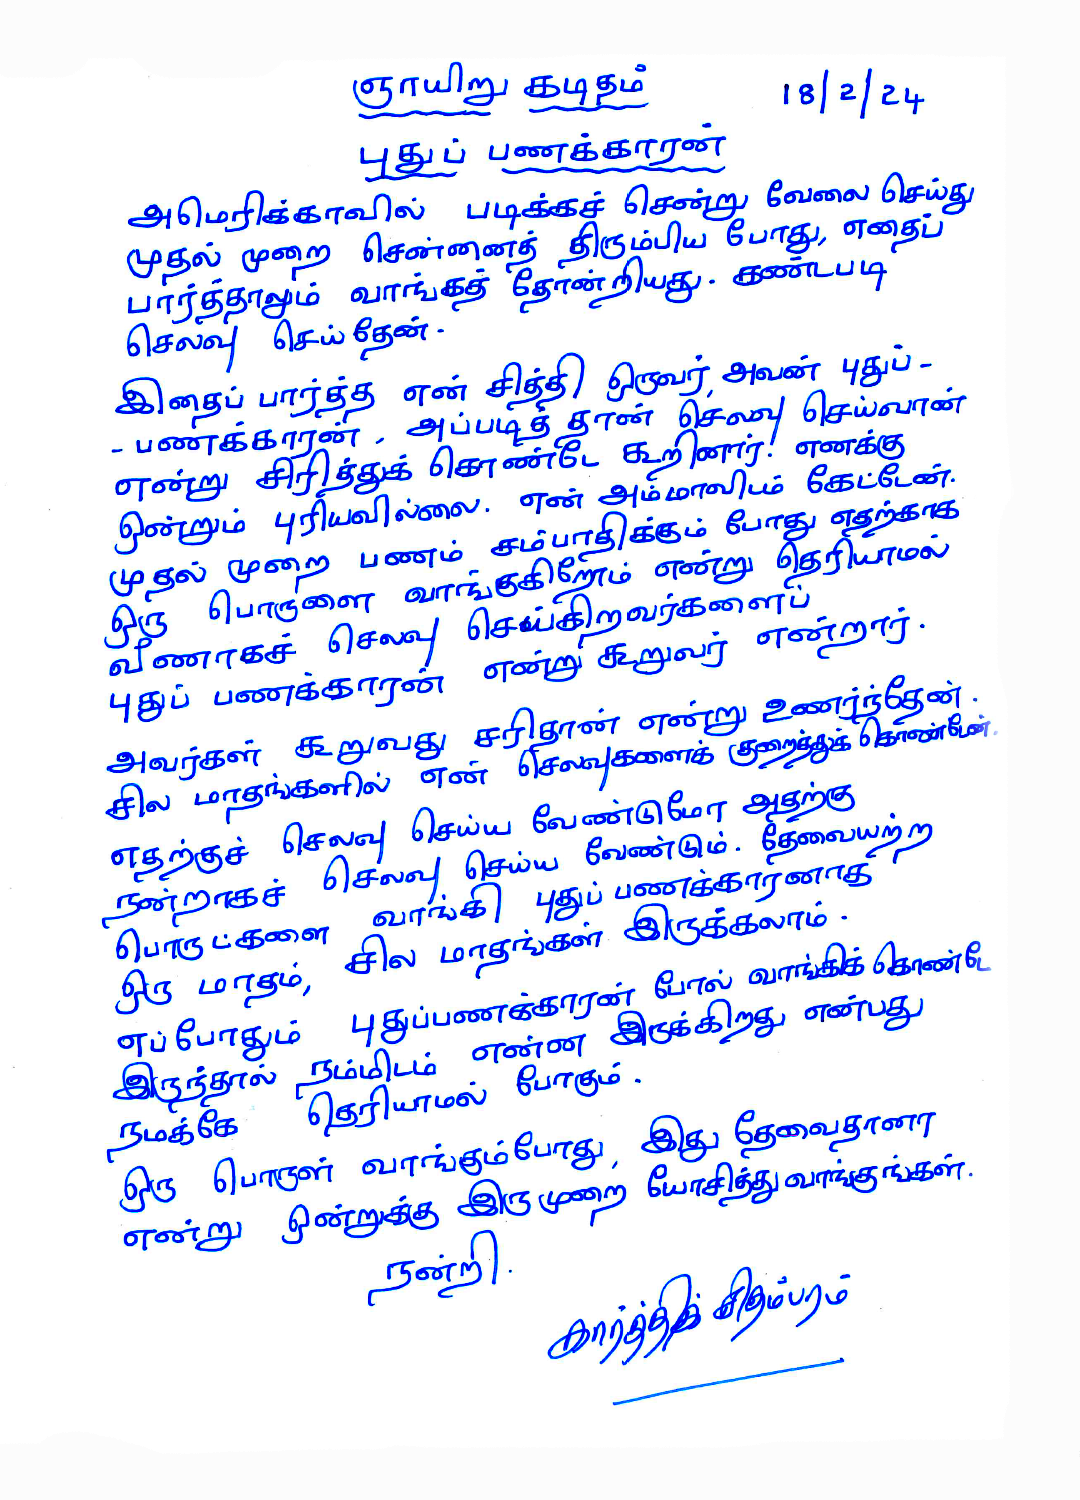 ஞாயிறு கடிதம் 18/2/24
புதுப் பணக்காரன்
அமெரிக்காவில் படிக்கச் சென்று வேலை செய்து
முதல் முறை சென்னைத் திரும்பிய போது, எதைப்
பார்த்தாலும் வாங்கத் தோன்றியது. கண்டபடி
செலவு செய்தேன்.
இதைப் பார்த்த என் சித்தி ஒருவர், அவன் புதுப் -
- பணக்காரன், அப்படித் தான் செலவு செய்வான்
என்று சிரித்துக் கொண்டே கூறினார்! எனக்கு
ஒன்றும் புரியவில்லை. என் அம்மாவிடம் கேட்டேன்.
முதல் முறை பணம் சம்பாதிக்கும் போது எதற்காக
ஒரு பொருளை வாங்குகிறோம் என்று தெரியாமல்
வீணாகச் செலவு செய்கிறவர்களைப்
புதுப் பணக்காரன் என்று கூறுவர் என்றார்.
அவர்கள் கூறுவது சரிதான் என்று உணர்ந்தேன்.
சில மாதங்களில் என் செலவுகளைக் குறைத்துக் கொண்டேன்.
எதற்குச் செலவு செய்ய வேண்டுமோ அதற்கு
நன்றாகச் செலவு செய்ய வேண்டும். தேவையற்ற
பொருட்களை வாங்கி புதுப் பணக்காரனாக
ஒரு மாதம், சில மாதங்கள் இருக்கலாம்.
எப்போதும் புதுப்பணக்காரன் போல் வாங்கிக் கொண்டே
இருந்தால் நம்மிடம் என்ன இருக்கிறது என்பது
நமக்கே தெரியாமல் போகும்.
ஒரு பொருள் வாங்கும்போது, இது தேவைதானா
என்று ஒன்றுக்கு இருமுறை யோசித்து வாங்குங்கள்.
நன்றி.
கார்த்திக் சிதம்பரம்